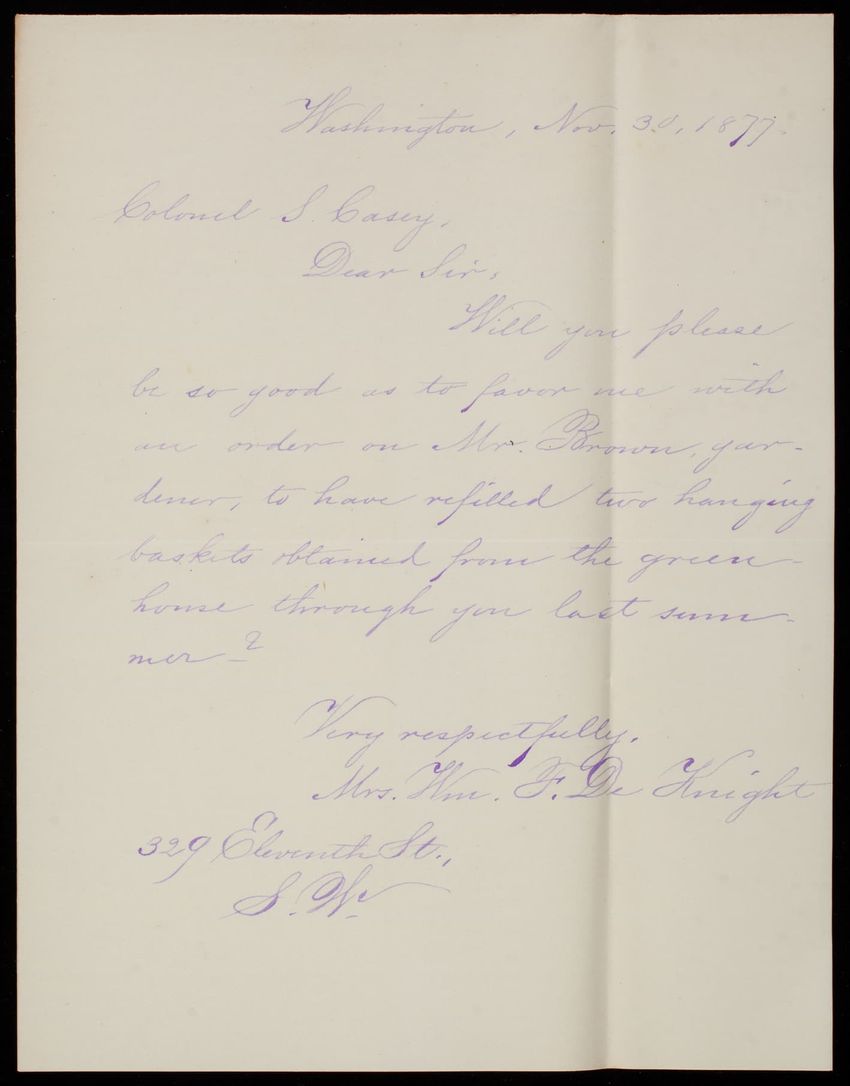 Washington, Nov. 30, 1877.
Colonel S. Casey,
Dear Sir,
Will you please
be so good as to favor me with
an order on Mr. Brown, gar-
dener, to have refilled two hanging
baskets obtained from the green-
house through you last sum-
mer-?
Very respectfully,
Mrs. Wm. F. De Knight
329 Eleventh St.,
S. W.